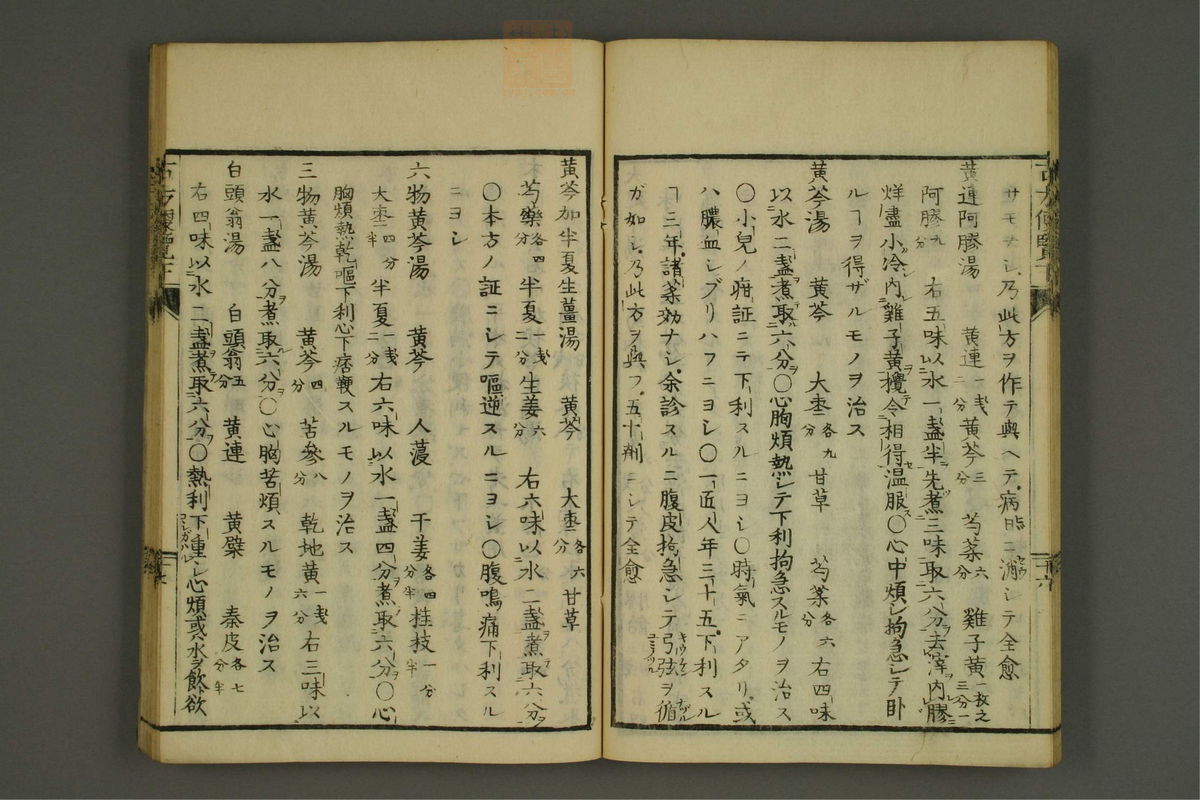 サモナシ乃此方ヲ作テ與ヘテ病日ニ消シテ全愈
黄連阿膠湯　黄連一戔二分黄芩三分　芍薬六分　雞子黄一枚之三分一
阿膠九分　右五味以水一盞半先煮三味取六分去滓内膠
烊盡小冷内雞子黄攪令相得温服〇心中煩シ拘急シテ卧
ルヿヲ得ザルモノヲ治ス
黄芩湯　黄芩　大棗各九分甘草　芍薬各六分右四味
以水二盞煮取六分〇心胸煩熱シテ下利拘急スルモノヲ治ス
〇小兒ノ疳証ニテ下利スルニヨシ〇時氣ニアタリ或
ハ膿血シブリハフニヨシ〇一匠人年三十五下利スル
ヿ三年諸薬効ナシ余診スルニ腹皮拘急シテ弓弦ヲ循
ガ如シ乃此方ヲ與フ五十劑ニシテ全愈
黄芩加半夏生薑湯　黄芩　大棗各六分甘草
芍藥各四分半夏一戔二分生姜六分　右六味以水二盞煮取六分
〇本方ノ証ニシテ嘔逆スルニヨシ〇腹鳴痛下利スル
ニヨシ
六物黄芩湯　黄芩　人薓　干姜各四分半桂枝一分半
大棗四分半　半夏一戔二分右六味以水一盞四分煮取六分〇心
胸煩熱乾嘔下利心下痞鞕スルモノヲ治ス
三物黄芩湯　黄芩四分　苦參八分　乾地黄一戔六分右三味以
水一盞八分煮取六分〇心胸苦煩スルモノヲ治ス
白頭翁湯　白頭翁五分　黄連　黄檗　秦皮各七分半
右四味以水二盞煮取六分〇熱利下重シ心煩或ハ水ヲ飲欲